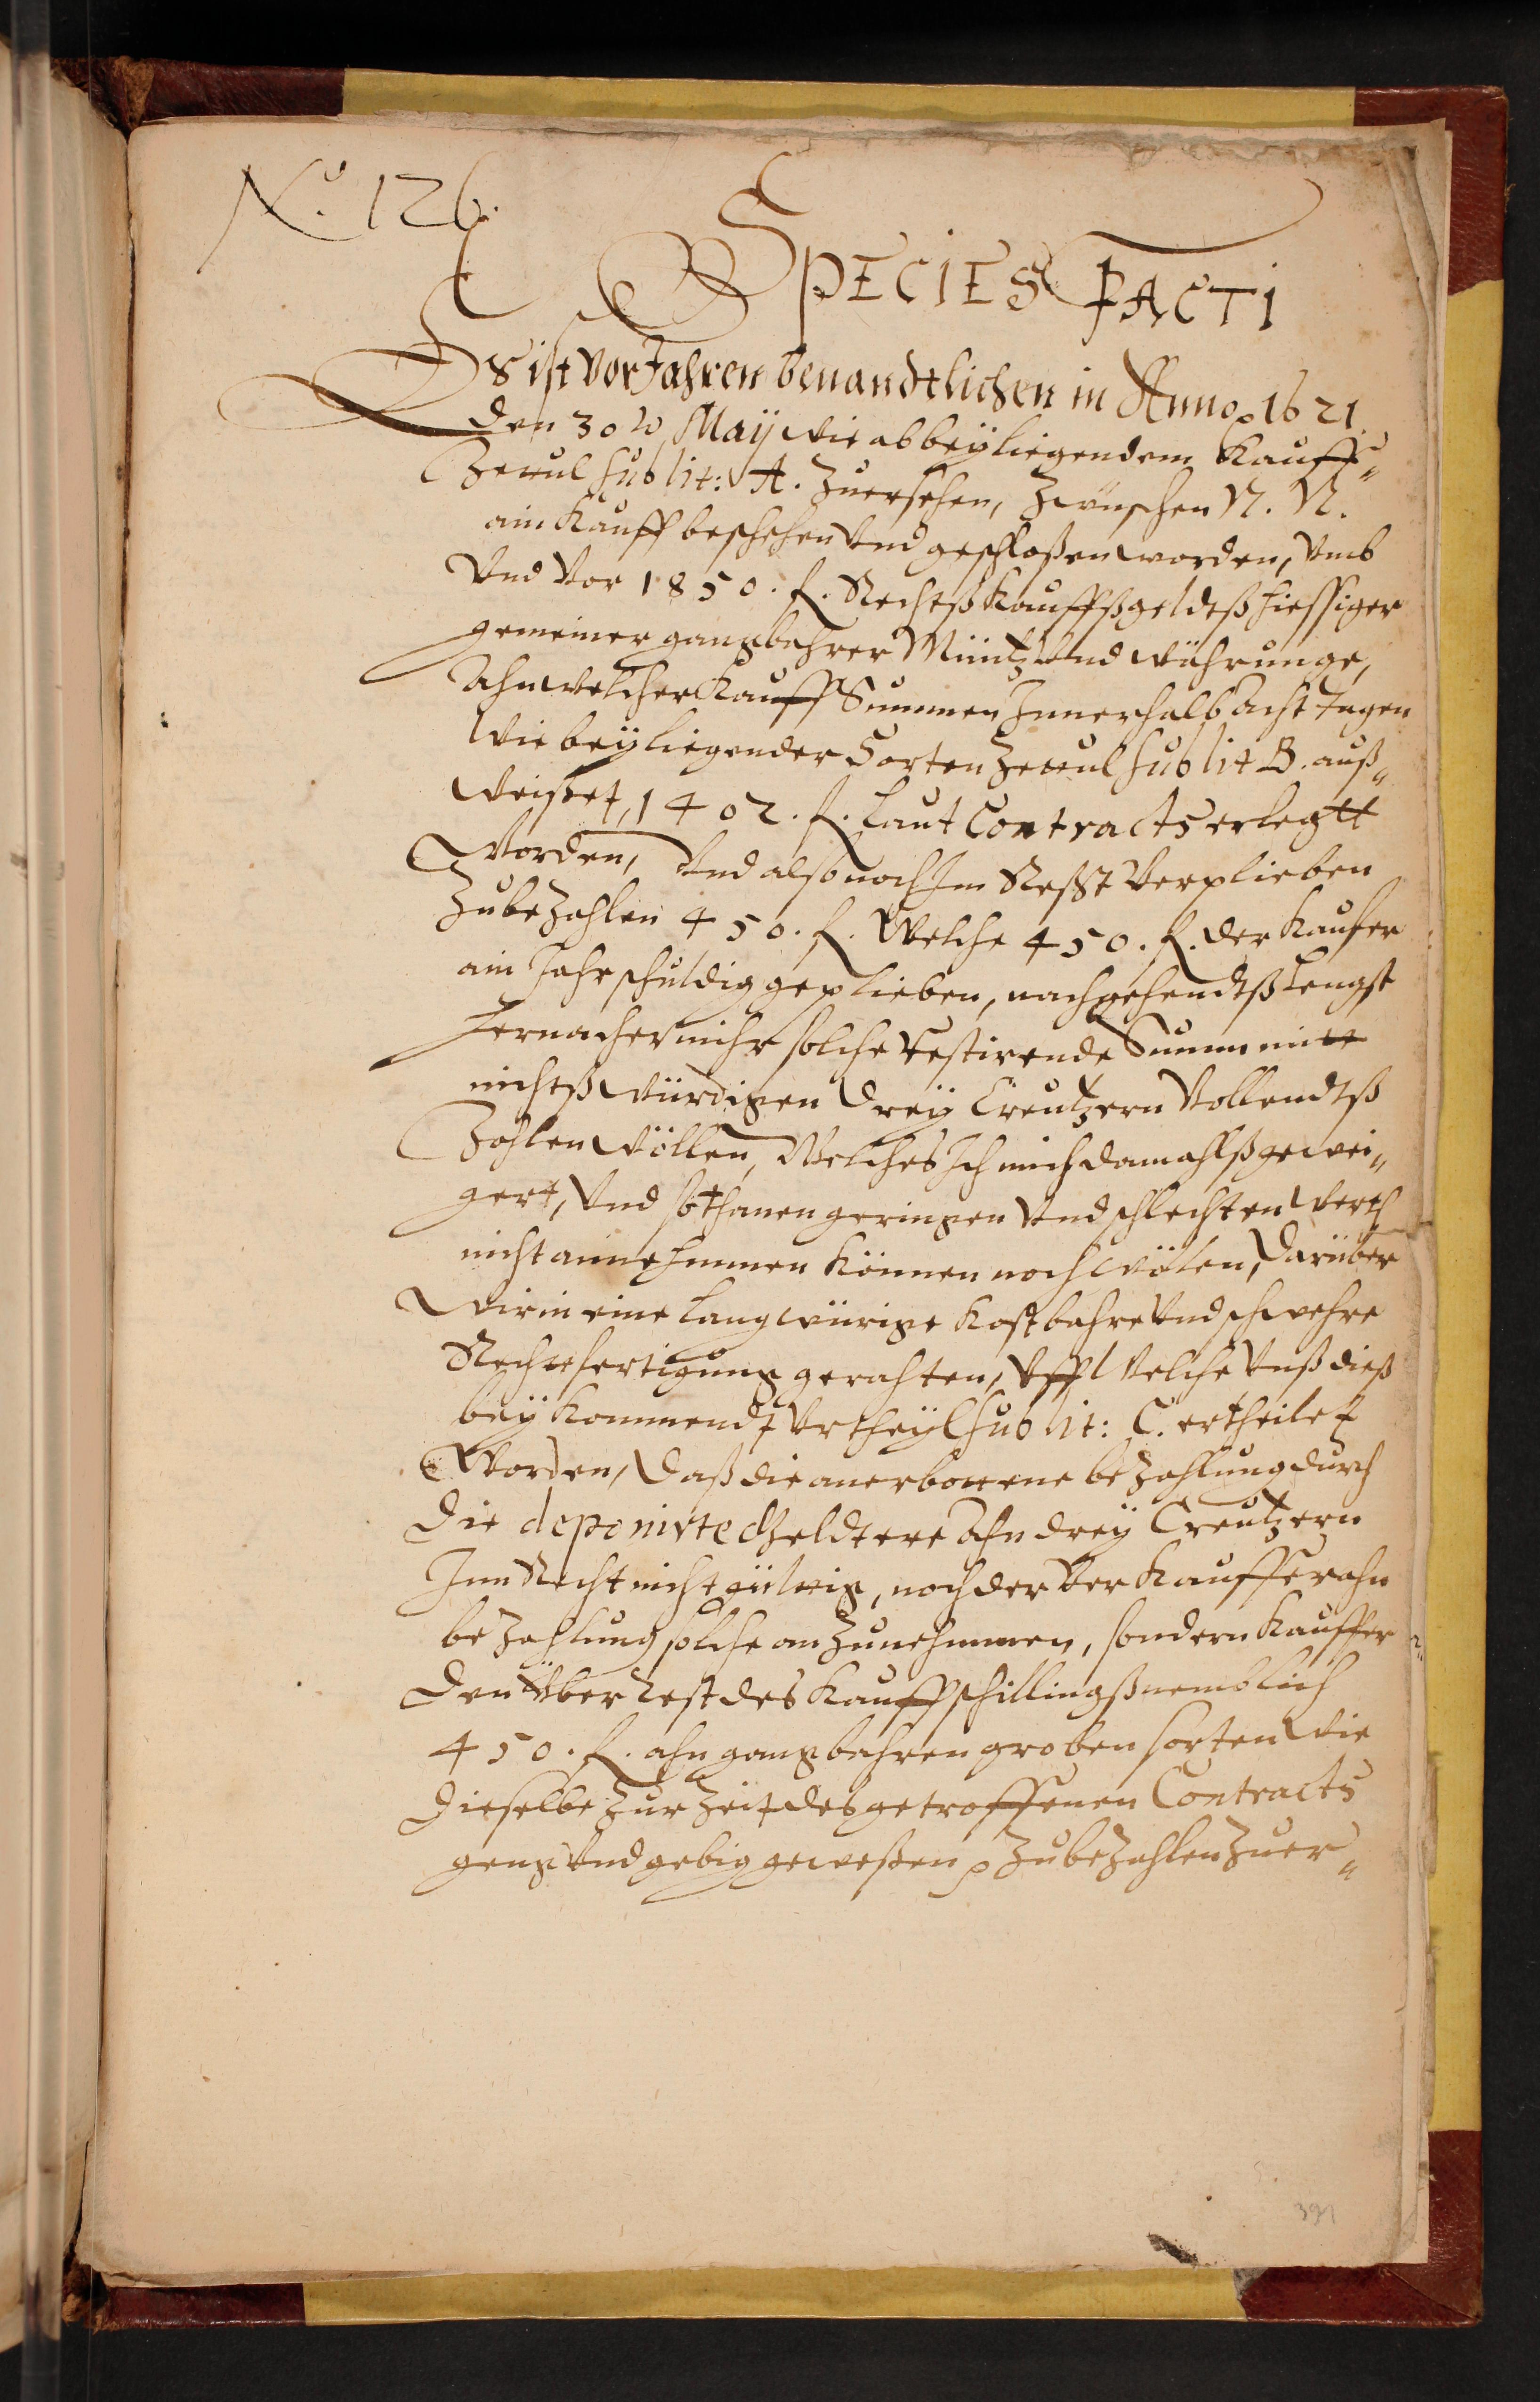 No. 126.
SPECIES FACTI
Es ist vor Jahren benandtlichen in Anno 1621.
den 30 Maÿ wie ab beÿliegendem Kauff„
Zettul sub lit: A. Zuersehen, Zwischen N. N.
ain Kauff beschehen vnd geschloßen worden, vmb
Vnd vor 1850. f. Rechtß Kauffßgeldtß hiessiger
gemeiner gangbahrer Müntz vnd währunge,
Ahn welcher Kauff Summen Innerhalb Acht tagen
wie beÿliegender Sorten Zettul sub lit B. auß„
weißet, 1402. f. laut Contracts erlegtt
worden, vnd also noch Im Resst verplieben
Zubezahlen 450. f. Welche 450. f. der Kaufer
ain Jahr schuldig geplieben, nachgehendtß lengst
hernacher mihr solche restirende Summ mitt
nichtß würdigen dreÿ Creutzern vollendtß
Zahlen wöllen, Welches Ich mich damahlß gewei„
gert, Vnd sothanen geringen Vnd schlechten werth
nicht annehmmen können noch wöllen, darüber
wir in eine langwürige Kostbahre Vnd schwehre
Rechtfertigung gerahten, Vff welche Vnß dieß
beÿ Kommendt Vrtheÿl sub lit: C. ertheilet
Worden, daß die anerbottene bezahlung durch
die deponirte Gelder Ahn dreÿ Creutzern
Inn Recht nicht gültig, noch der Verkauffer ahn
bezahlung solche an Zunehmmen, sondern Kauffer
den Überrest des Kauffschillingß nemblich
450. f. ahn gangbahren groben sorten wie
dieselbe Zur Zeit des getroffenen Contracts
geng Vnd gebig geweßen Zubezahlen Zuer„
391